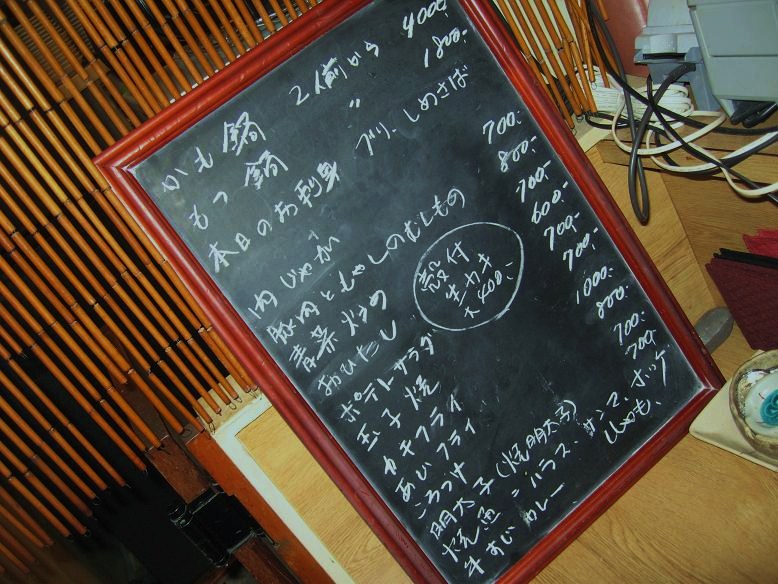 かも鍋 2人前から 4000.-
もつ鍋 〃 1800.-
本日のお刺身 ブリ、しめさば
肉じゃが 700.-
豚肉ともやしのむしもの 800.-
青菜炒め 700.-
おひたし 600.-
ポテトサラダ 700.-
玉子焼 700.-
カキフライ 1000.-
あじフライ 800.-
ころっけ 700.-
明太子(焼明太子) 700.-
焼魚 ハラス、サンマ、ホッケ
牛すじカレー
殻付
生カキ
400.-